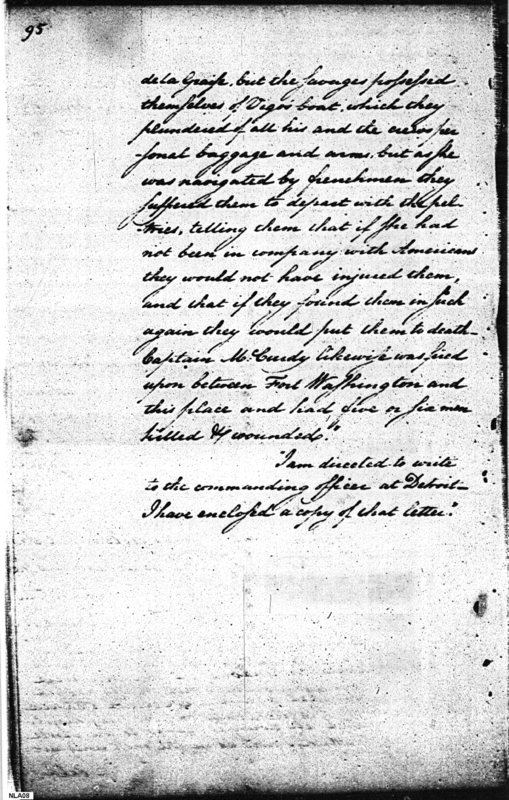 95
de la Graise, but the savages possessed
themselves of Vigos boat, which they
plundered of all his and the crews per
-sonal baggage and arms, but as she
was navigated by frenchmen they
suffered them to depart with the pel
tries, telling them that if she had
not been in company with Americans
they would not have injured them,
and that if they found them in such
again they would put them to death—
Captain McCurdy likewise was fired
upon between Fort Washington and
this place and had five or six men
killed & wounded."
"I am directed to write
to the commanding officer at Detroit—
I have enclosed a copy of that letter."
NLA08